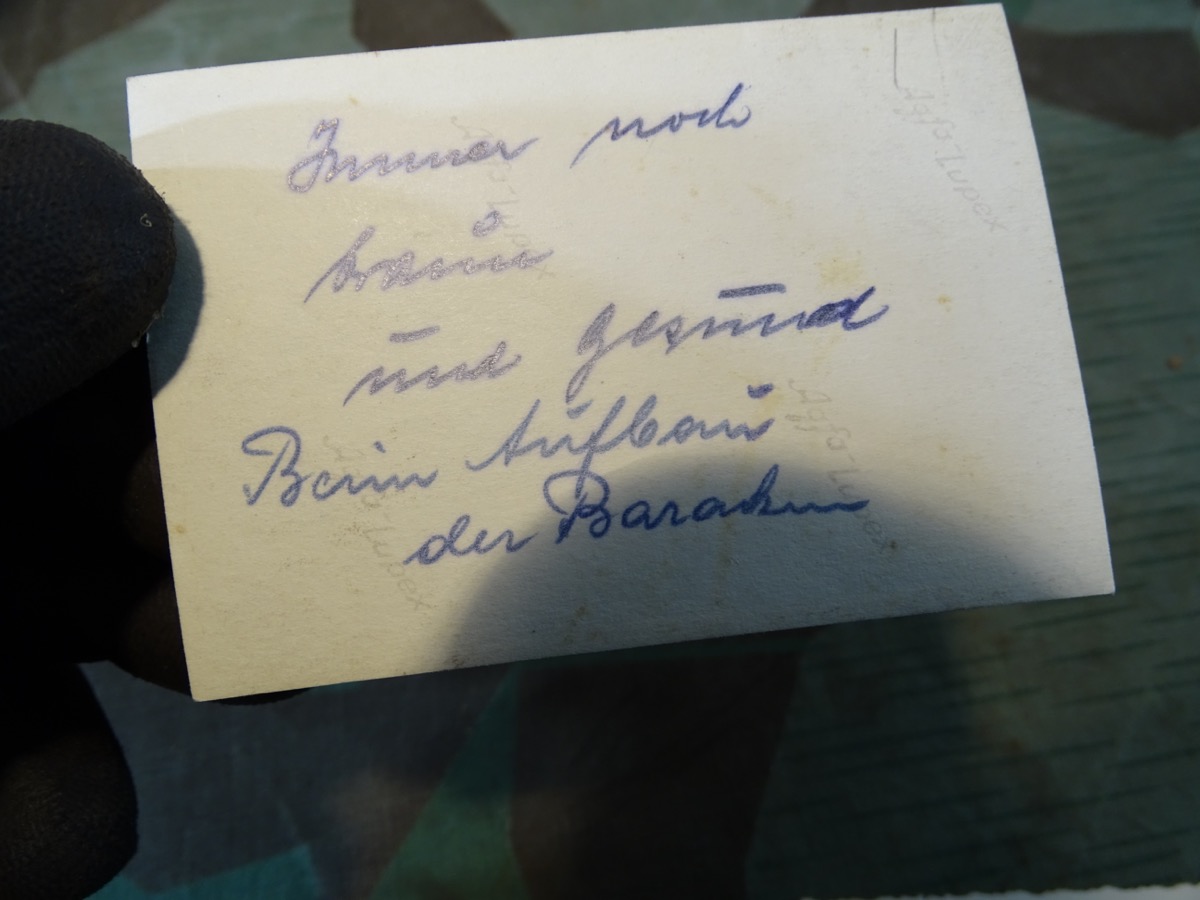 Immer noch
braun
und gesund
Beim Aufbau
der Baracken
Agfa Lupex
Agfa Lupex
Agfa Lupex
Agfa Lupex